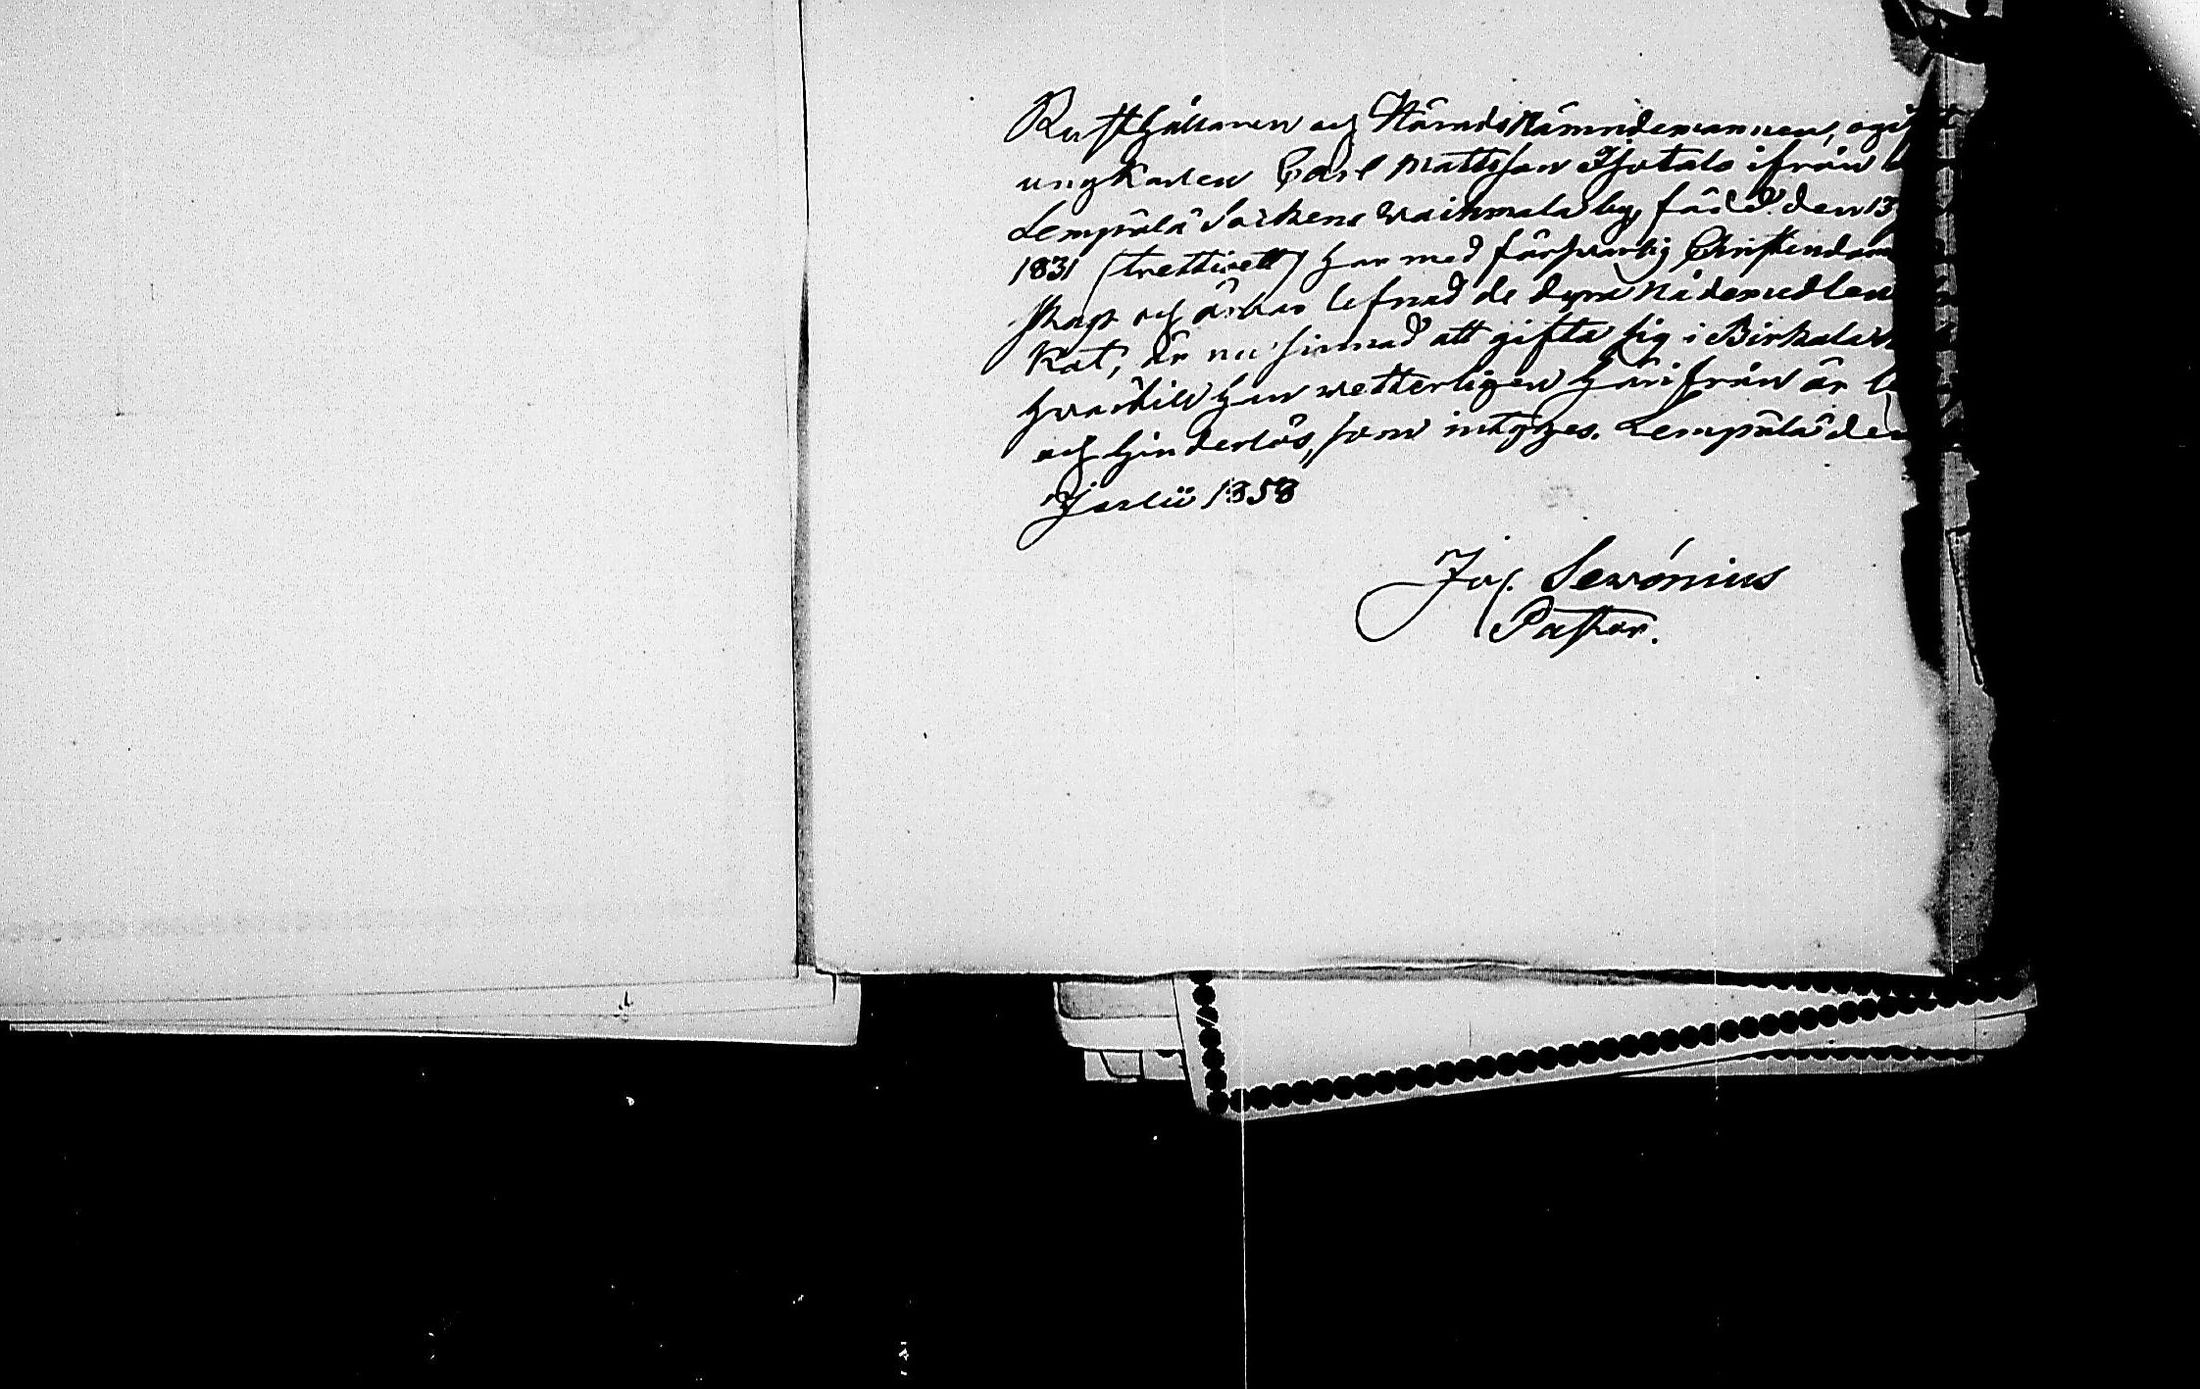 Rusthållaren och Härads Nämndemannen, ogif
ungkarlen Carl Mattsson Isotalo ifrån
Lempälä Sockens Waihmala by, född den 13
1831 (trettiett) har med försvarlig Christendom
skap och ärbar lefnad de dyra Nådemedlen
kat, är nu sinnad att gifta sig i Birkala
hvartill han wetterligen härifrån är le
och hinderlös, som intygas. Lempälä den
Julii 1858
Jos. Sewónius
Pastor.